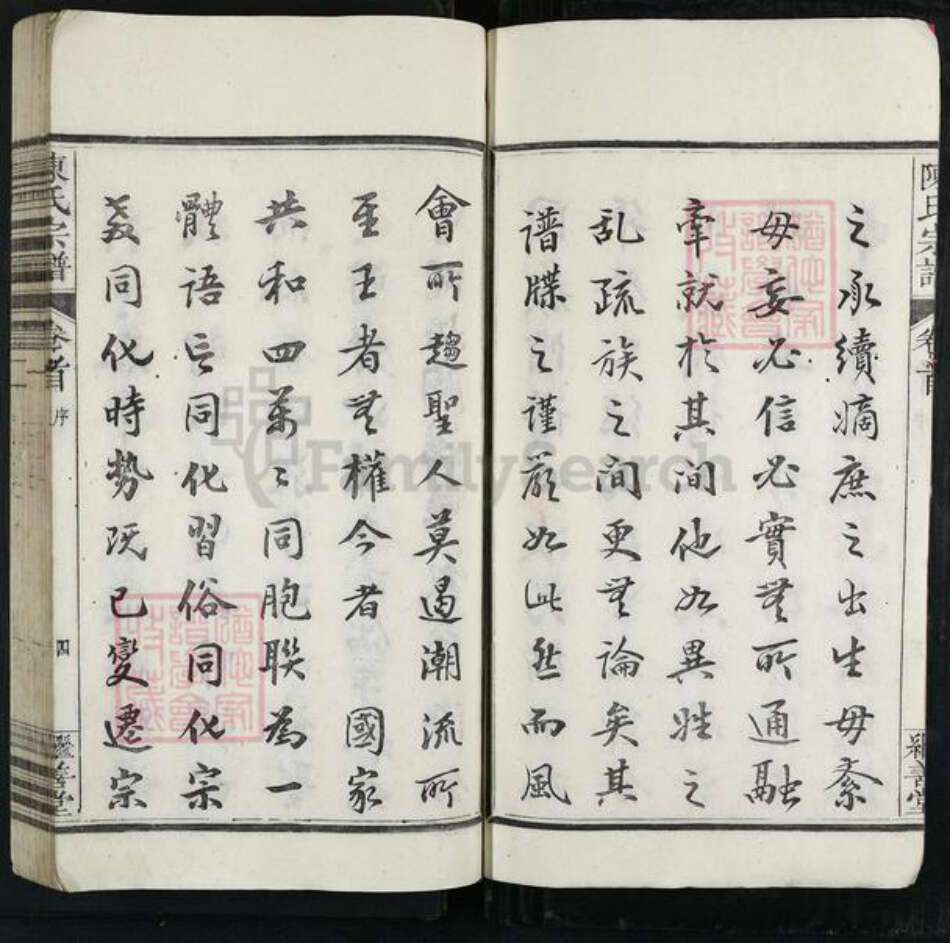 陳氏宗譜 卷首
之承續嫡庶之出生毋紊
毋妄必信必實無所通融
牽就於其間他如異姓之
乱疏族之間更無論矣其
譜牒之謹嚴如此然而風
會所趨聖人莫遏潮流所
至王者無權今者 國家
共和四萬萬同胞聯為一
體語言同化習俗同化宗
教同化時勢既已變遷宗
陳氏宗譜 卷首 序 四
FamilySearch